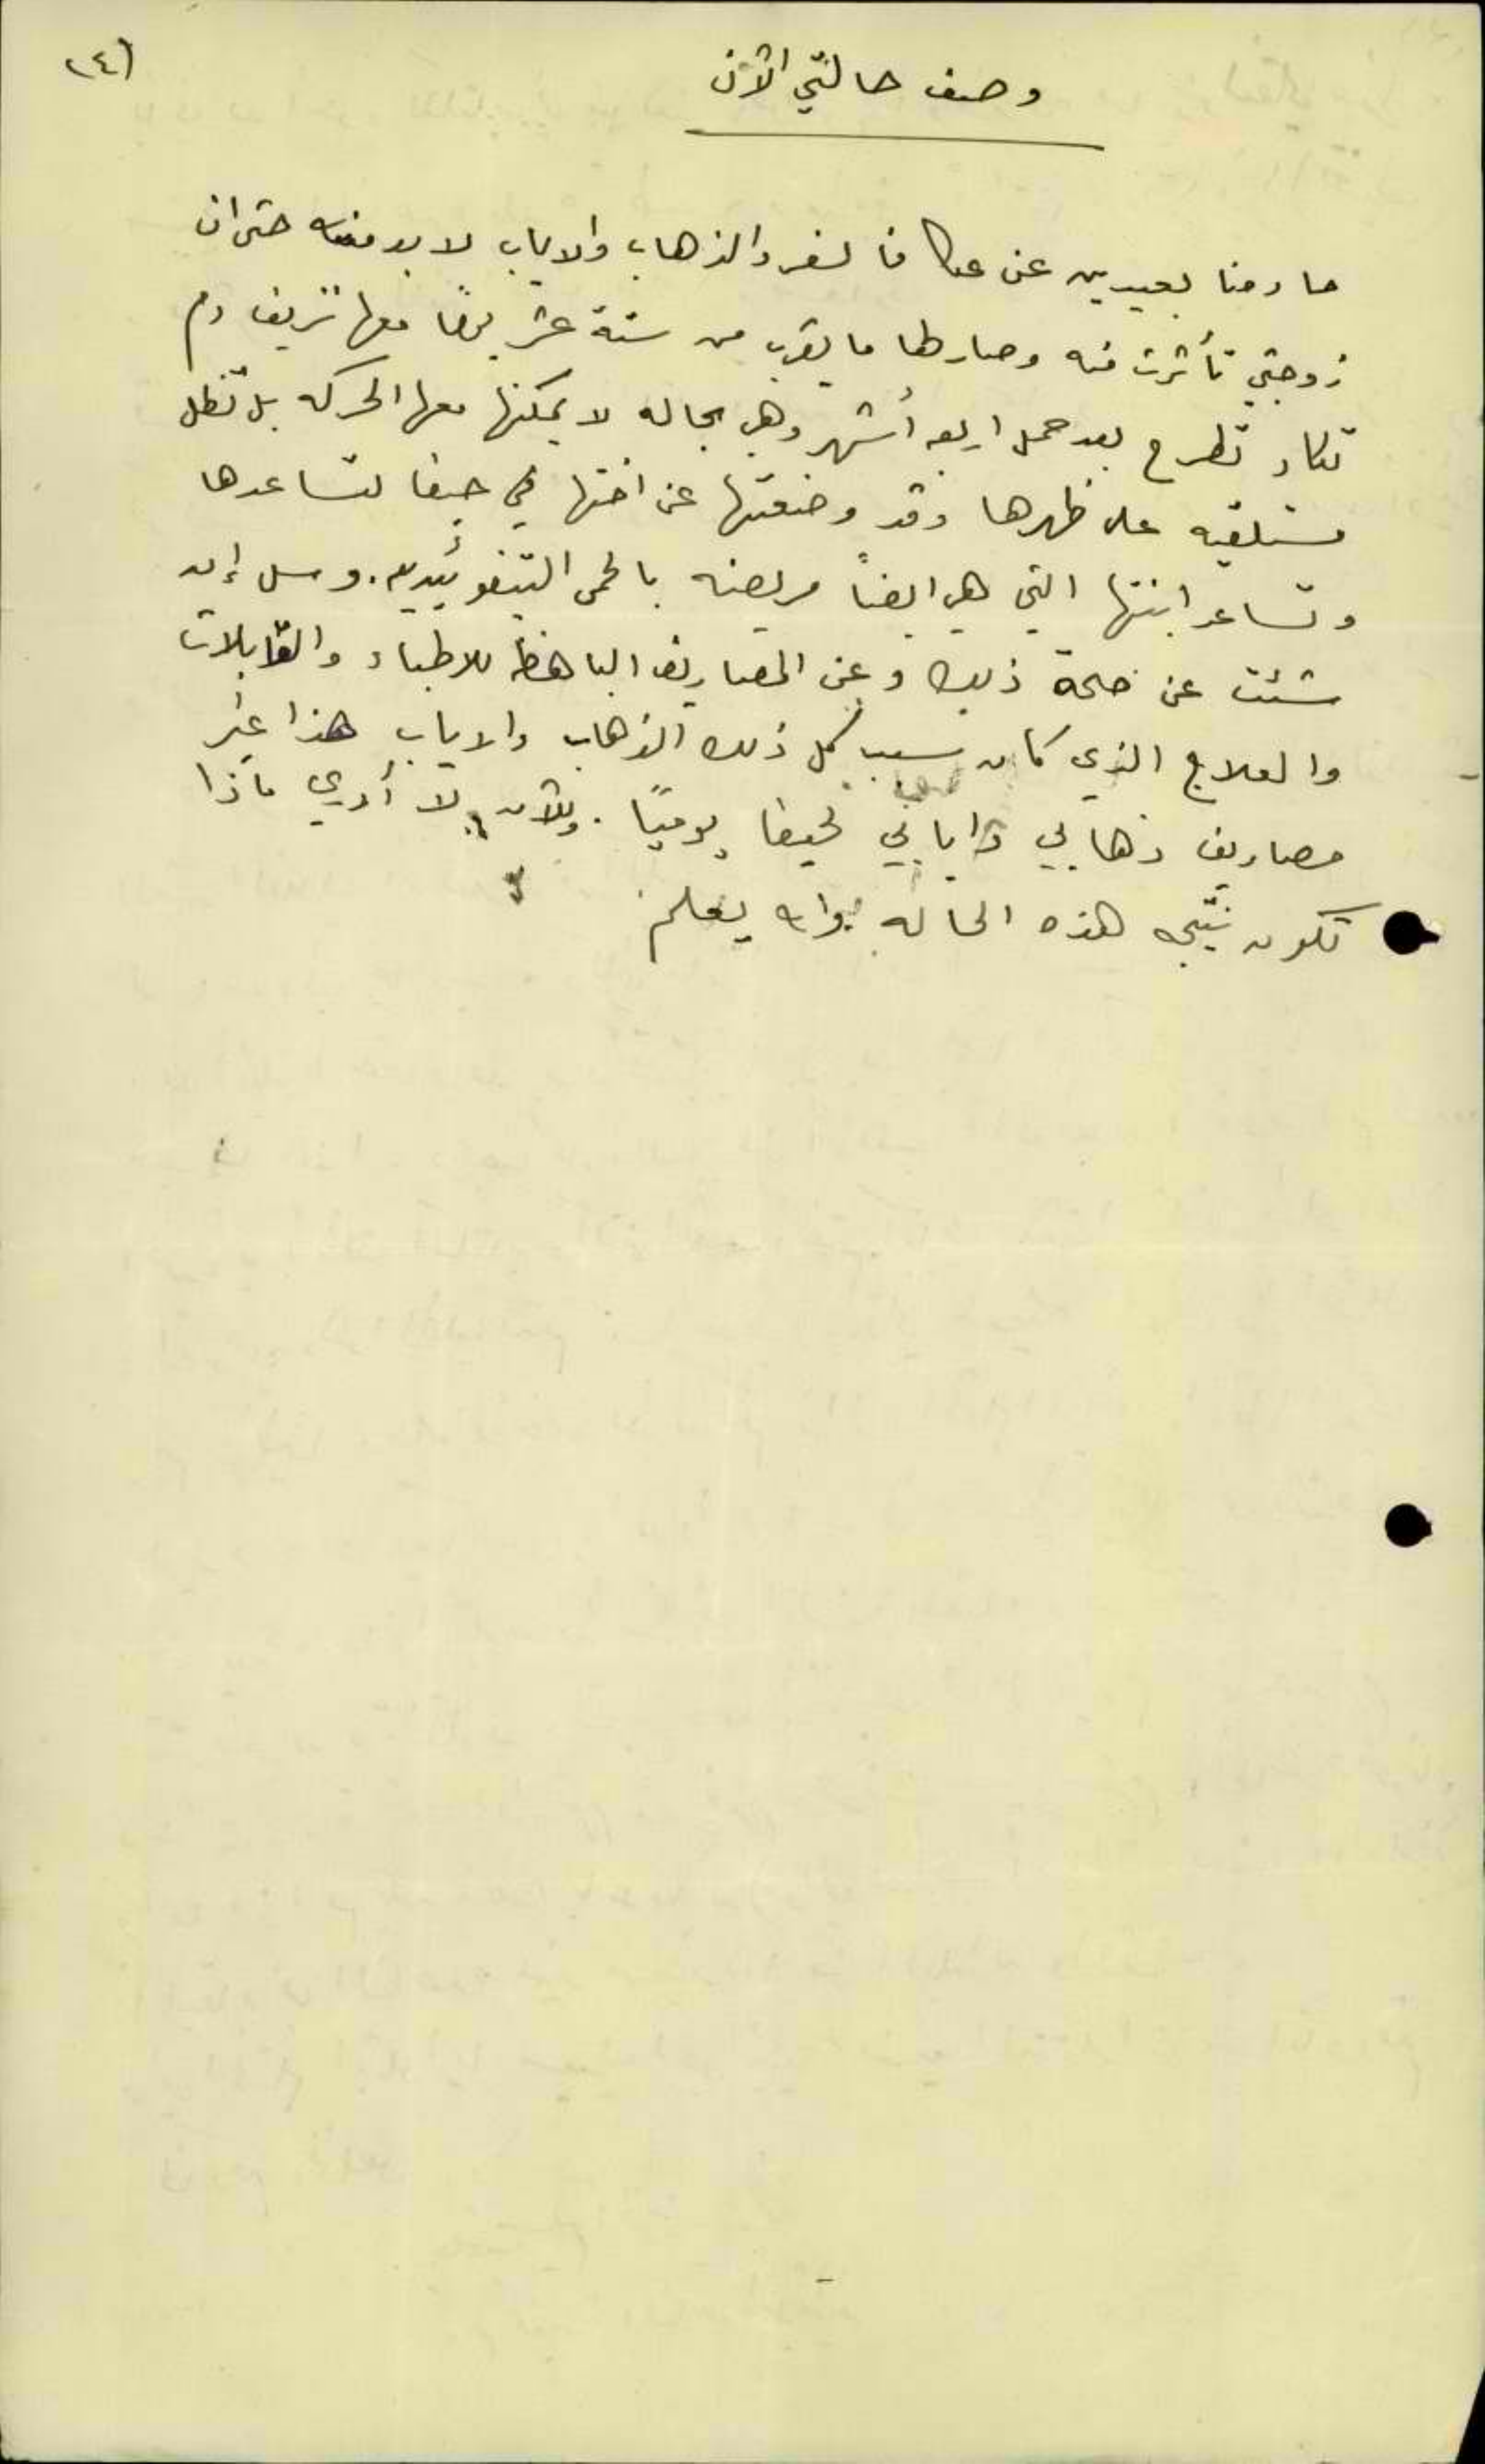 (٤)
وصف حالتي الآن
ما دمنا بعيدين عن عكا فالسفر والذهاب والاياب لا بد منه حتى ان
زوجتي تأثرت منه وصار لها ما يقرب من ستة عشر يومًا معها نزيف دم
تكاد تطرح بعد حمل اربعه أشهر وهي بحاله لا يمكنها معها الحركه بل تظل
مستلقيه على ظهرها وقد وضعتها عند اختها في حيفا لتساعدها
وتساعد ابنتها التي هي ايضاً مريضه بالحمى التيفوئيديه. وسل إن
شئت عن صحة ذلك وعن المصاريف الباهظة للاطباء والقابلات
والعلاج الذي كان سبب كل ذلك الذهاب والاياب هذا غير
مصاريف ذهابي وايابي لحيفا يوميًا. وللآن لا أدري ماذا
تكون نتيجه هذه الحاله والله يعلم